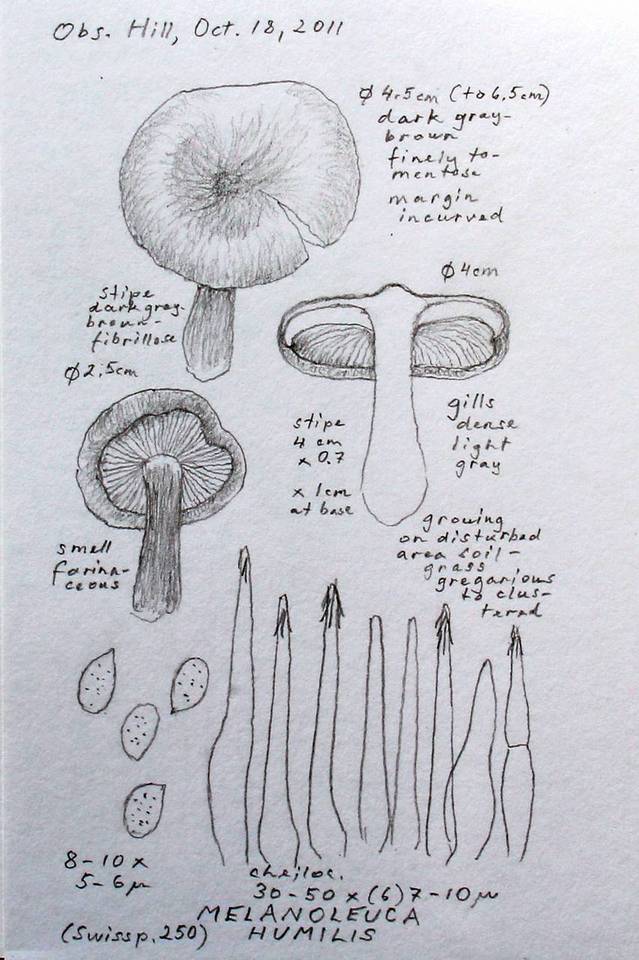 Obs. Hill, Oct. 18, 2011
Ø 4.5cm (to 6,5cm)
dark gray-
brown
finely to-
mentose
margin
incurved
stipe
dark gray-
brown-
fibrillose
Ø 4cm
Ø 2,5cm
stipe
4 cm
x 0.7
x 1cm
at base
gills
dense
light
gray
growing
on disturbed
area soil-
grass
gregarious
to clus-
tered
smell
farina-
ceous
8-10 x
5-6µ
cheiloc.
30-50 x (6) 7-10 µ
MELANOLEUCA
(Swiss p. 250) HUMILIS